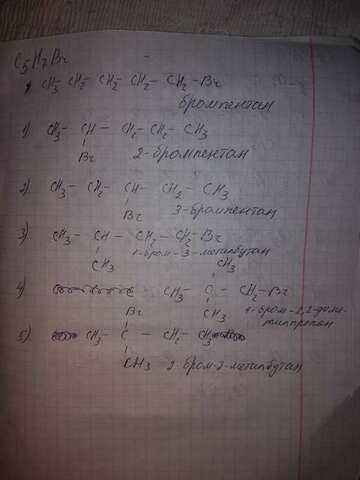 C5H7Br
CH3 CH2 - CH2 - CH2 - CH2 - Br
бромпентан
1) CH3 - CH - CH2 - CH2 - CH3
Br
2-бромпентан
2) CH3 - CH2 - CH - CH2 - CH3
Br
3-бромпентан
3) CH3 - CH - CH2 - CH2 - Br
CH3
1-бром-3-метилбутан
CH3
4) CH3 - C - CH2 - Br
CH3
1-бром-2,2-диме-
тилпропан
Br
5) CH3 - C - CH2 CH3
CH3
2-бром-2-метилбутан